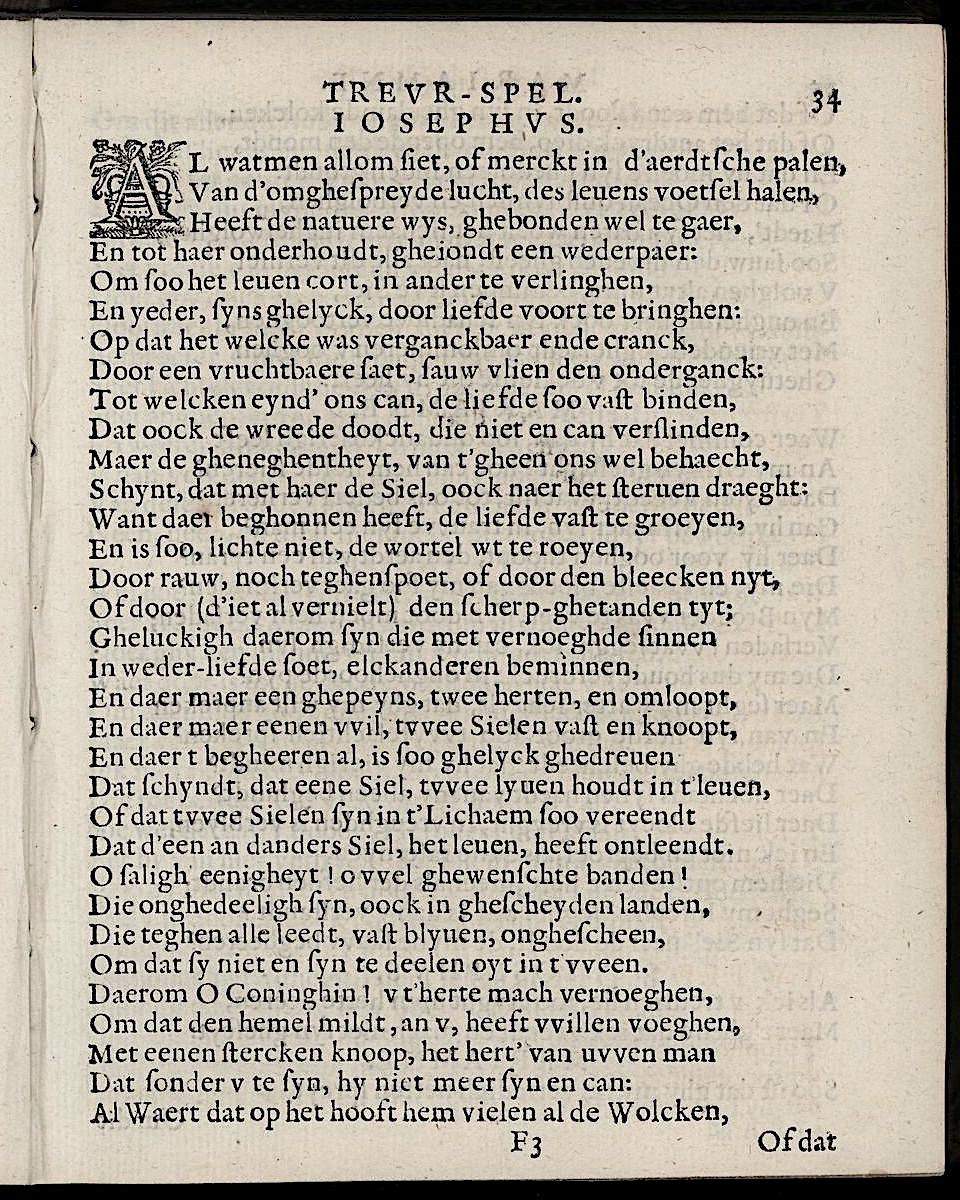 TREVR-SPEL. 34
IOSEPHVS.
AL watmen allom ſiet, of merckt in d'aerdtſche palen,
Van d'omgheſpreyde lucht, des leuens voetſel halen,
Heeft de natuere wys, ghebonden wel te gaer,
En tot haer onderhoudt, gheiondt een wederpaer:
Om ſoo het leuen cort, in ander te verlinghen,
En yeder, ſyns ghelyck, door liefde voort te bringhen:
Op dat het welcke was verganckbaer ende cranck,
Door een vruchtbaere ſaet, ſauw vlien den onderganck:
Tot welcken eynd' ons can, de liefde ſoo vaſt binden,
Dat oock de wreede doodt, die niet en can verſlinden,
Maer de gheneghentheyt, van t'gheen ons wel behaecht,
Schynt, dat met haer de Siel, oock naer het ſteruen draeght:
Want daer beghonnen heeft, de liefde vaſt te groeyen,
En is ſoo, lichte niet, de wortel wt te roeyen,
Door rauw, noch teghenſpoet, of door den bleecken nyt,
Of door (d'iet al vernielt) den ſcherp-ghetanden tyt;
Gheluckigh daerom ſyn die met vernoeghde ſinnen
In weder-liefde ſoet, elckanderen beminnen,
En daer maer een ghepeyns, twee herten, en omloopt,
En daer maer eenen vvil, tvvee Sielen vaſt en knoopt,
En daer t begheeren al, is ſoo ghelyck ghedreuen
Dat ſchyndt, dat eene Siel, tvvee lyuen houdt in t'leuen,
Of dat tvvee Sielen ſyn in t'Lichaem ſoo vereendt
Dat d'een an danders Siel, het leuen, heeft ontleendt.
O ſaligh eenigheyt ! o vvel ghewenſchte banden !
Die onghedeeligh ſyn, oock in gheſcheyden landen,
Die teghen alle leedt, vaſt blyuen, ongheſcheen,
Om dat ſy niet en ſyn te deelen oyt in tvveen.
Daerom O Coninghin ! v t'herte mach vernoeghen,
Om dat den hemel mildt, an v, heeft vvillen voeghen,
Met eenen ſtercken knoop, het hert' van uvven man
Dat ſonder v te ſyn, hy niet meer ſyn en can:
Al Waert dat op het hooft hem vielen al de Wolcken,
F3 Of dat